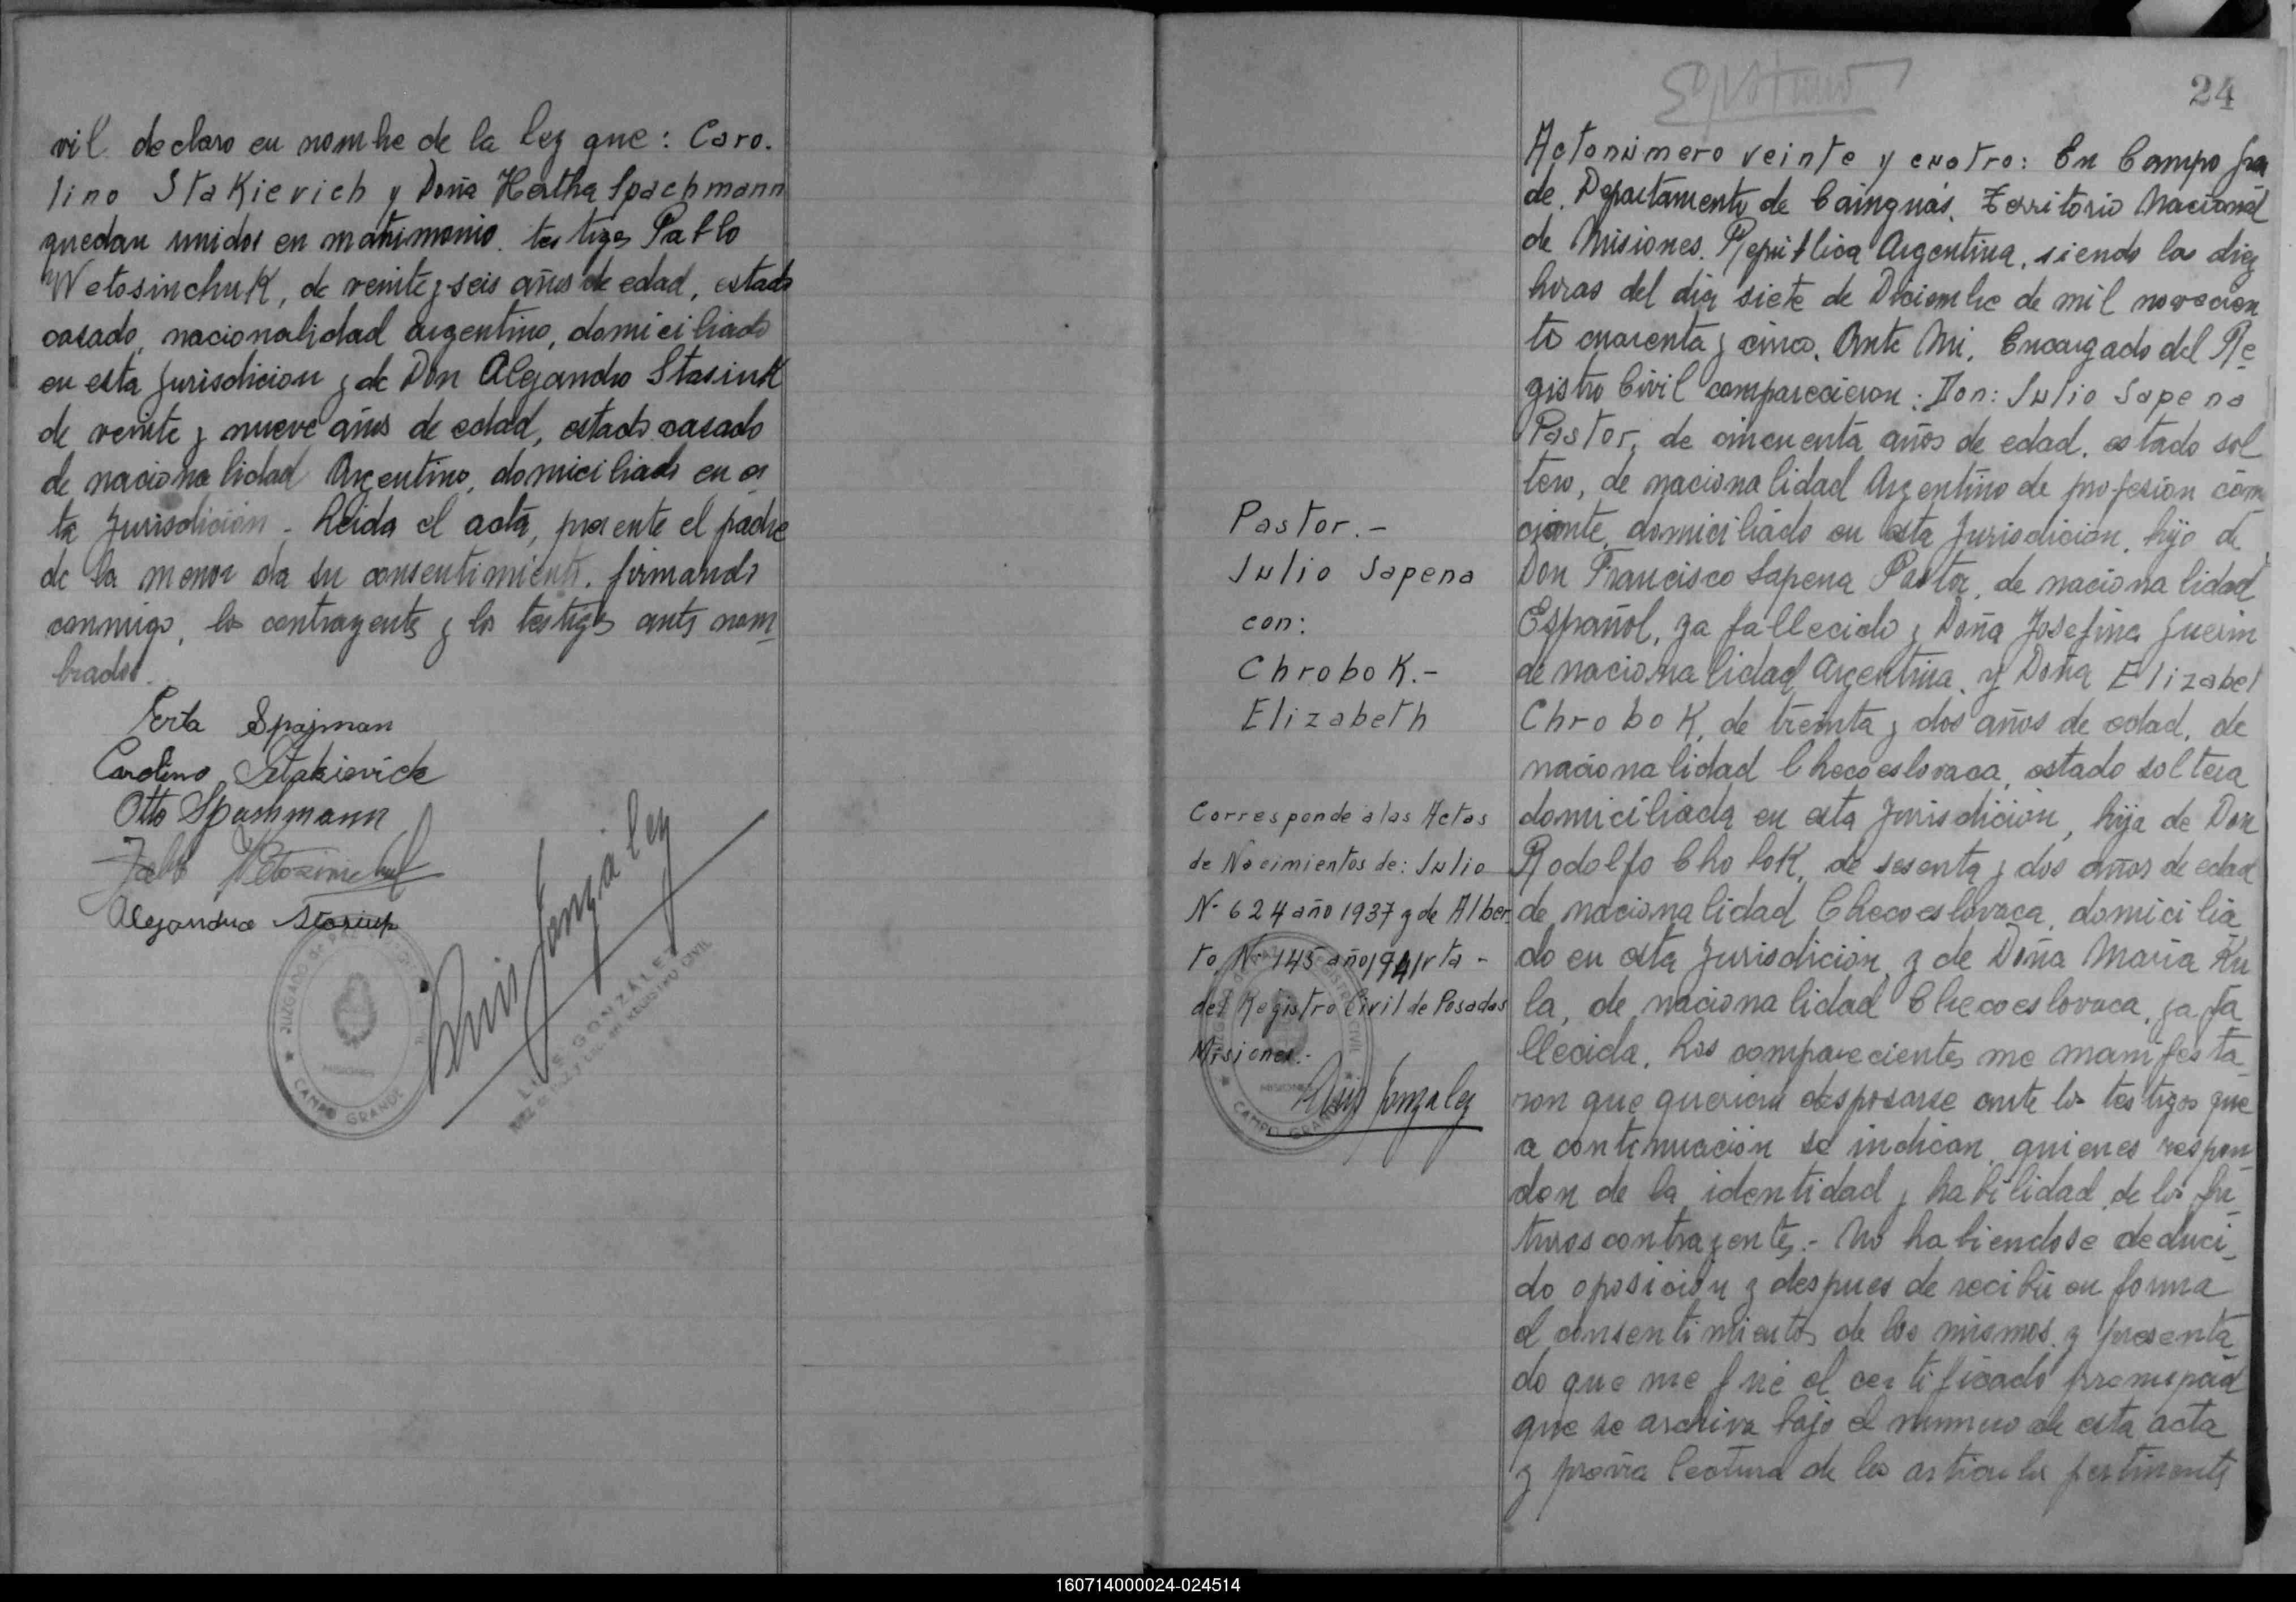 vil declaro en nombre de la ley que: Caro.
lino Stakievich y Doña Hertha Spachmann
quedan unidos en matrimonio. testigos Pablo
Wetosinchuk, de veinte y seis años de edad, estado
casado, nacionalidad argentino, domiciliado
en esta Jurisdicion y de Don Alejandro Stasiuk
de veinte y nueve años de edad, estado casado
de nacionalidad Argentino, domiciliado en es
ta Jurisdición. Leida el acta, presente el padre
de la menor da su consentimiento. firmando
conmigo, los contrayentes y los testigos antes nom
brados.
Erta Spajman
Carolino Stakievich
Otto Spachmann
Alejandro Stasiuk
Luis Gonzalez
JUZGADO DE PAZ
MISIONES
CAMPO GRANDE
LUIS GONZÁLEZ
JUEZ DE PAZ Y ENC. DEL REGISTRO CIVIL
24
Pastor.-
Julio Sapena
con:
Chrobok.-
Elizabeth
Corresponde a las Actas
de Nacimientos de: Julio
N- 624 año 1937 y de Alber
to N- 145 año 1941 vta -
del Registro Civil de Posadas
Misiones.-
Luis Gonzalez
REGISTRO CIVIL
MISIONES
CAMPO GRANDE
Acta número veinte y cuatro: En Campo Gran
de, Departamento de Cainguás, Territorio Nacional
de Misiones. República Argentina, siendo las diez
horas del dia siete de Diciembre de mil novecien
tos cuarenta y cinco, Ante Mi, Encargado del Re
gistro Civil comparecieron: Don: Julio Sapena
Pastor, de cincuenta años de edad, estado sol
tero, de nacionalidad Argentino de profesion com
ciante, domiciliado en esta Jurisdicion, hijo de
Don Francisco Sapena Pastor, de nacionalidad
Español, ya fallecido y Doña Josefina Guerin
de nacionalidad Argentina, y Doña Elizabet
Chrobok, de treinta y dos años de edad, de
nacionalidad Checoeslovaca, estado soltera
domiciliada en esta Jurisdición, hija de Don
Rodolfo Chobok, de sesenta y dos años de edad
de nacionalidad Checoeslovaca, domicilia
do en esta Jurisdición, y de Doña Maria Ku
la, de nacionalidad Checoeslovaca, ya fa
llecida. Los comparecientes me manifesta
ron que querian desposarse ante los testigos que
a continuación se indican, quienes respon
den de la identidad y habilidad de los fu
turos contrayentes.- No habiendose deduci
do oposición y despues de recibir en forma
el consentimiento de los mismos, y presenta
do que me fué el certificado prenupcial
que se archiva bajo el numero de esta acta
y previa lectura de los articulos pertinentes
160714000024-024514